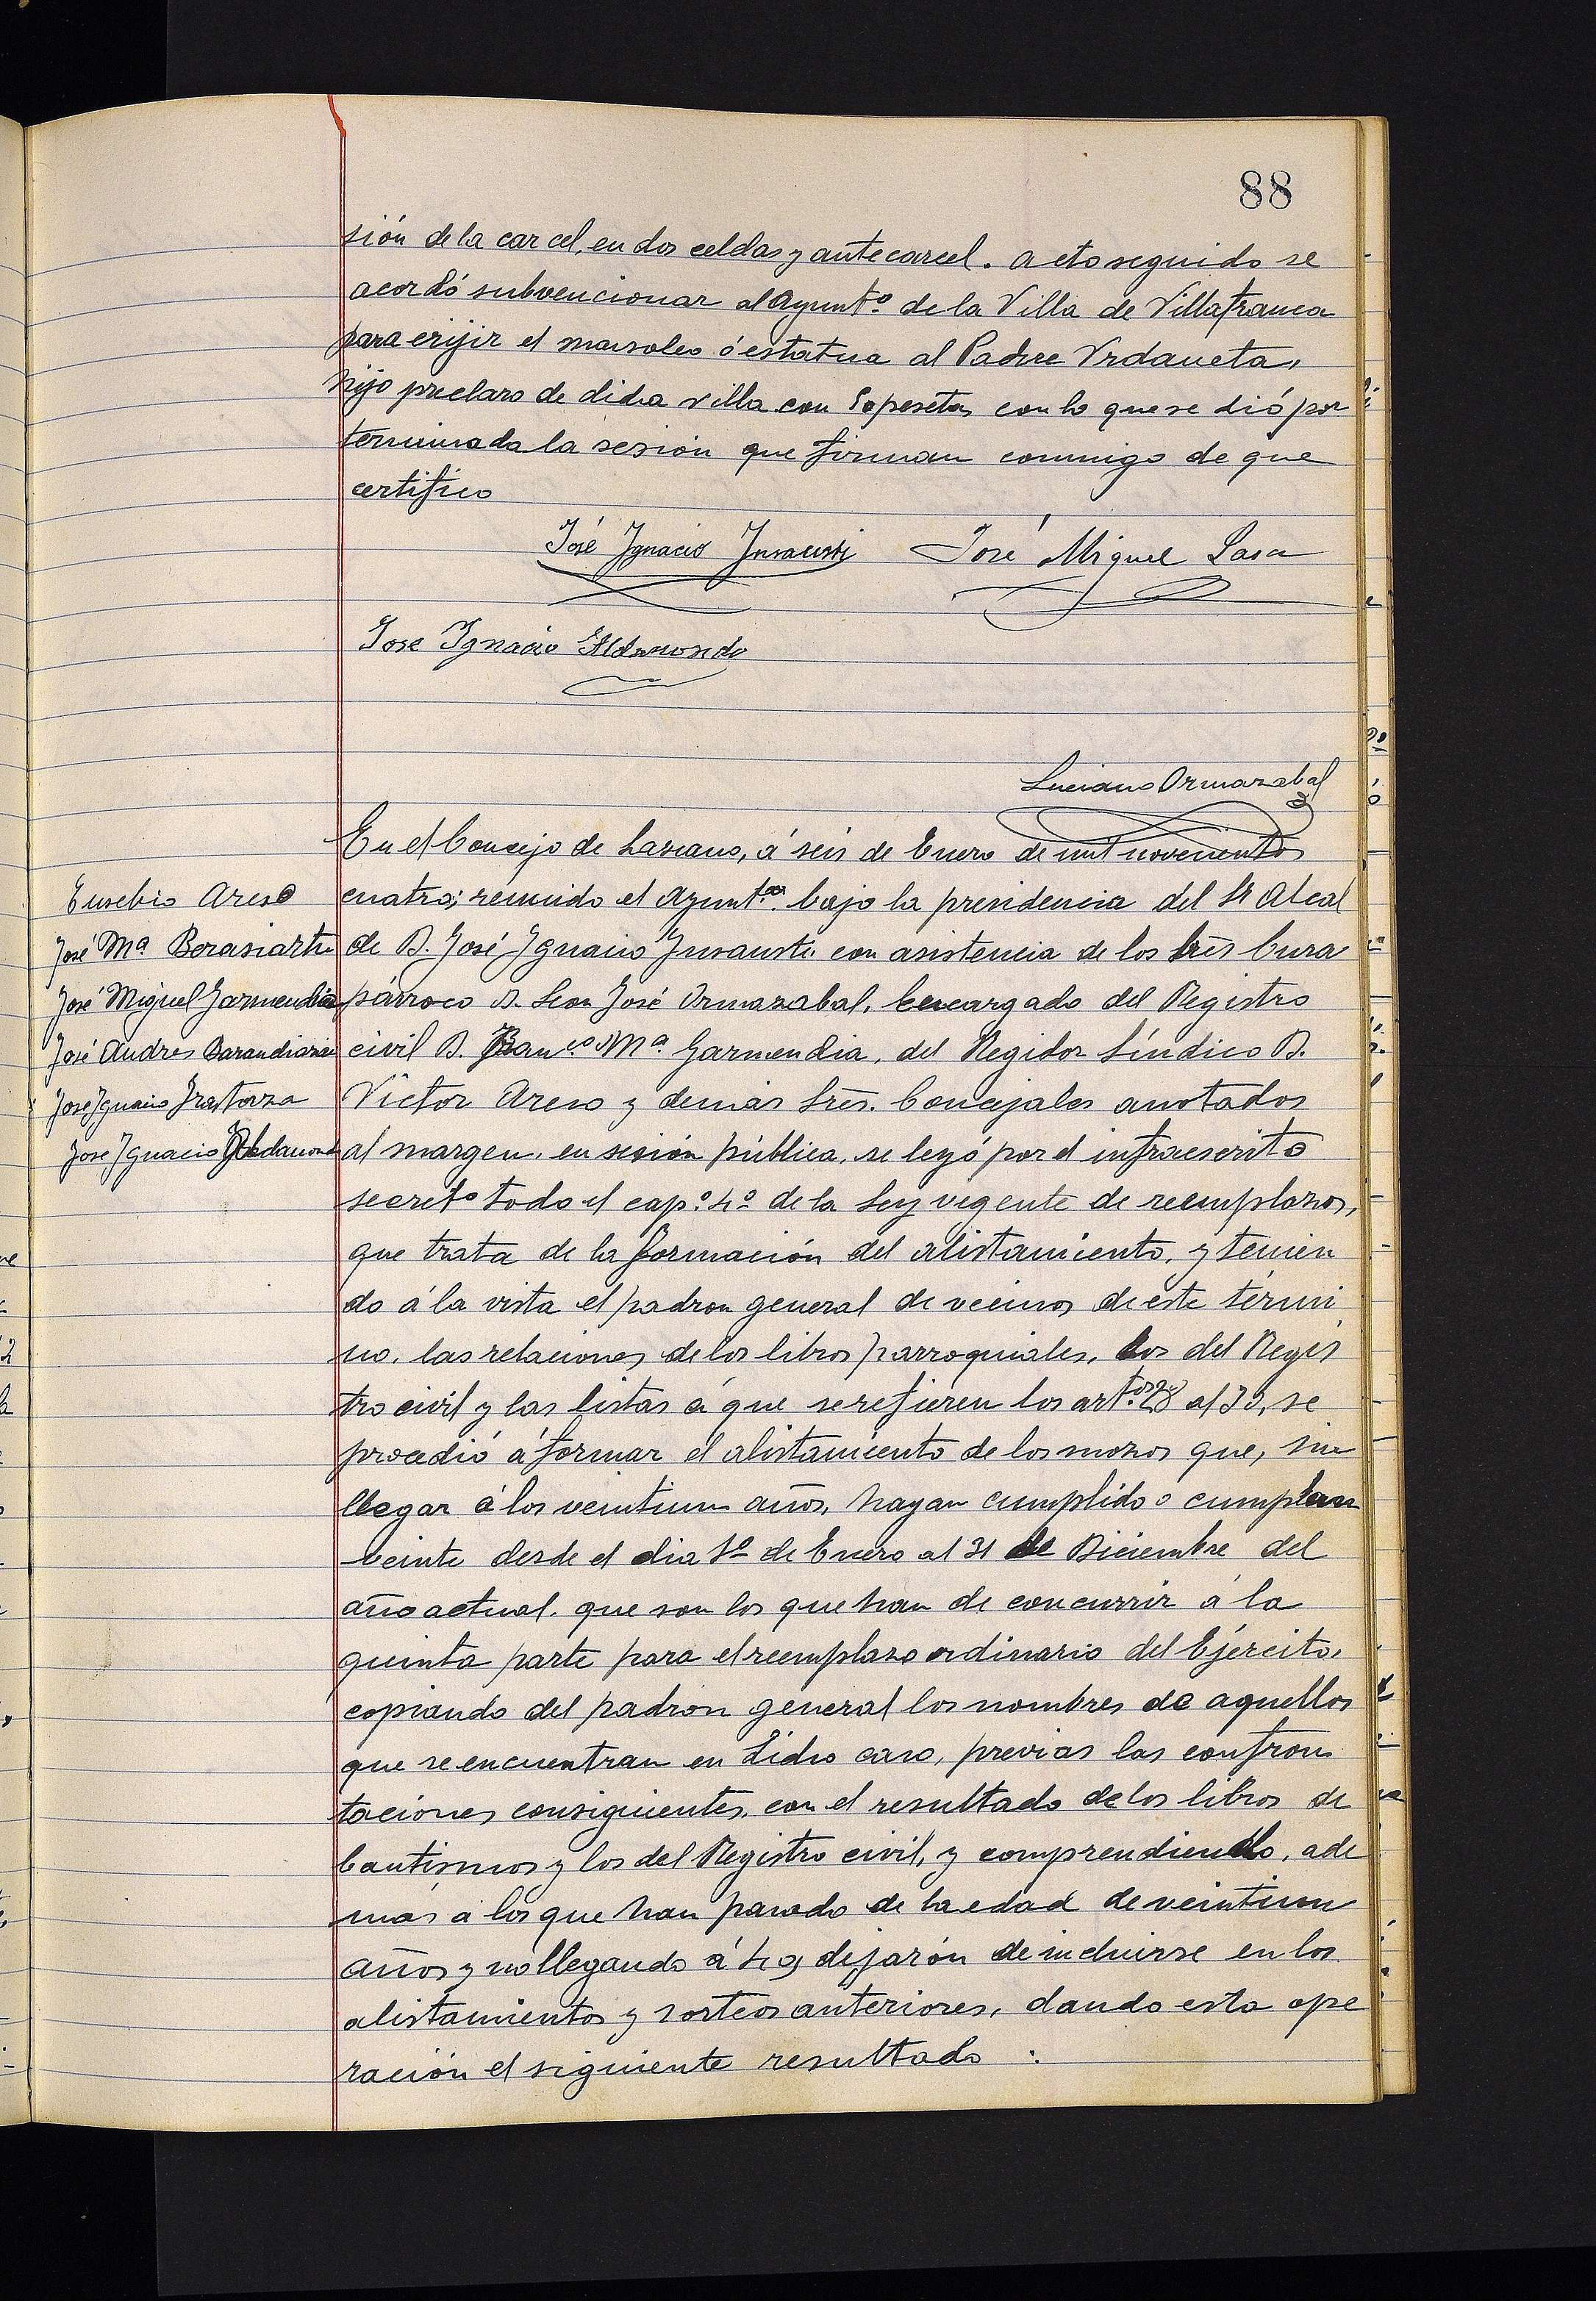 88
sión de la carcel, en dos celdas y antecarcel. acto seguido se
acordó subvencionar al Ayuntº de la Villa de Villafranca
para erijir el mausoleo ó estatua al Padre Urdaneta,
hijo preclaro de dicha villa con pesetas con lo que se dió por
terminada la sesión que firman conmigo de que
certifico
José Ignacio Insausti José Miguel Lasa
Jose Ignacio Aldanondo
Luciano Ormazabal
En el Concejo de Lazcano, á seis de Enero de mil novecientos
cuatro; reunido el Ayuntº bajo la presidencia del Sr Alcal
de D. José Ignacio Insausti con asistencia de los Srēs Cura
párroco D. Leon José Ormazabal, Encargado del Registro
civil D. Francº Mª Garmendia, del Regidor Síndico D.
Victor Areso y demás Srēs. Concejales anotados
al margen, en sesión pública, se leyó por el infraescrito
secretº todo el capº 4º de la Ley vigente de reemplazos,
que trata de la formación del alistamiento, y tenien
do á la vista el padron general de vecinos de este térmi
no, las relaciones de los libros parroquiales, los del Regis
tro civil y las listas á que se refieren los artºs 28 al 33, se
procedió á formar el alistamiento de los mozos que, sin
llegar á los veintiun años, hayan cumplido o cumplan
veinte desde el dia 1º de Enero al 31 de Diciembre del
año actual, que son los que han de concurrir á la
quinta parte para el reemplazo ordinario del Ejército,
copiando del padrón general los nombres de aquellos
que se encuentran en dicho caso, previas las confron
taciones consiguientes, con el resultado de los libros de
bautismos y los del Registro civil, y comprendiendo, ade
más a los que han pasado de la edad de veintiun
años y no llegando á 40 dejarón de incluirse en los
alistamientos y sorteos anteriores, dando esta ope
ración el siguiente resultado :
Eusebio Areso
José Mª Berasiartu
José Miguel Garmendia
José Andres Barandiaran
José Ignacio Irastorza
Jose Ignacio Aldanondo